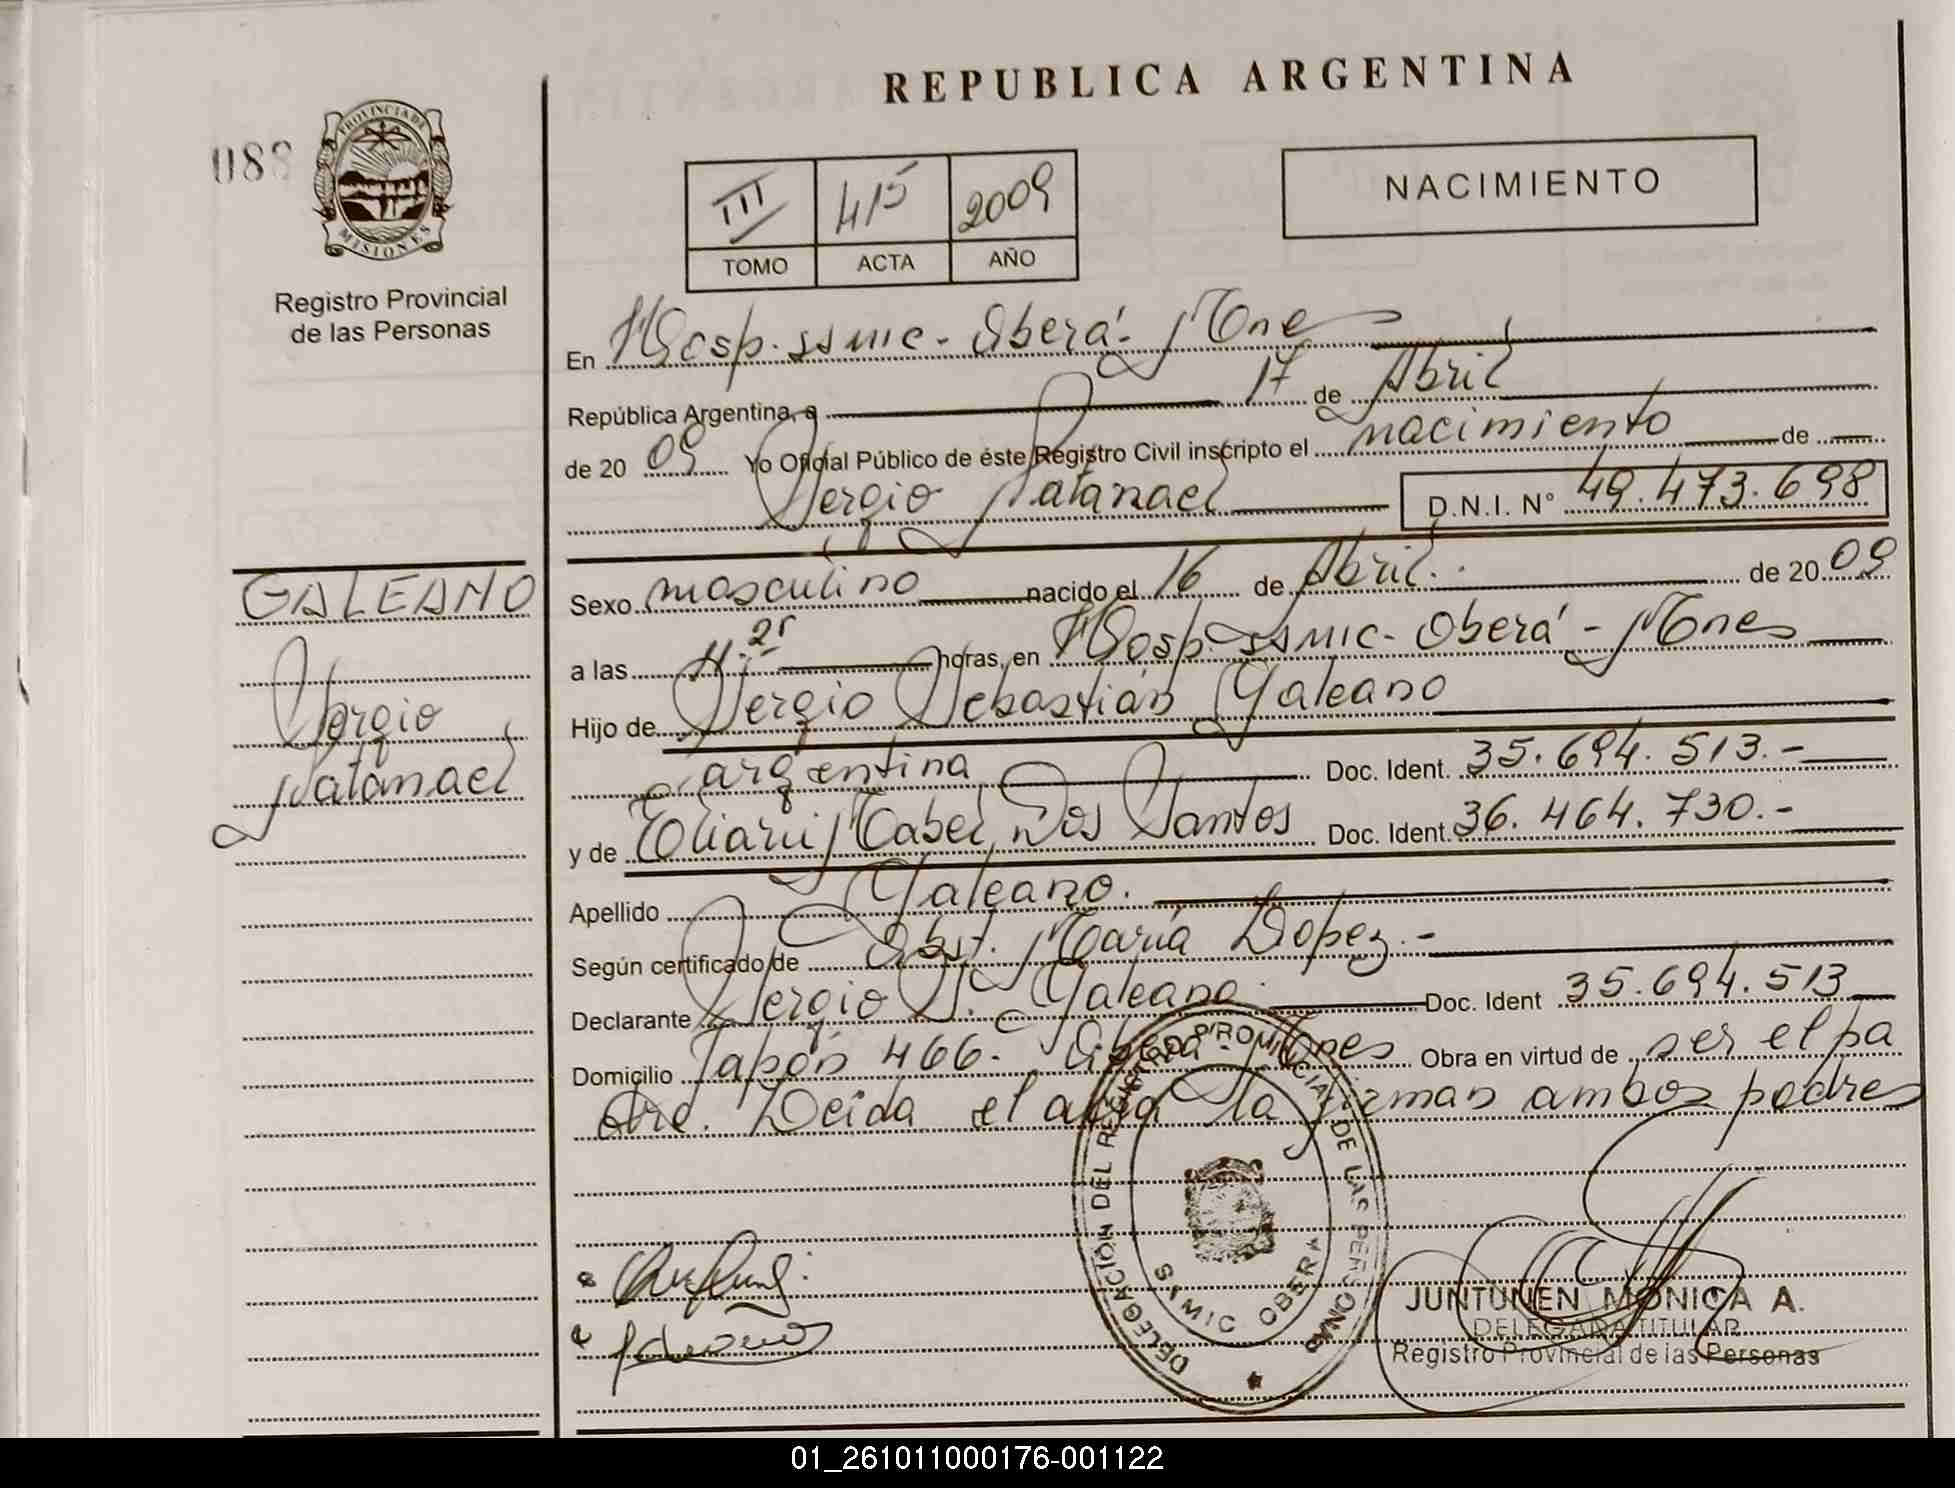 REPUBLICA ARGENTINA
088
PROVINCIA DE
MISIONES
Registro Provincial
de las Personas
III 415 2009
TOMO ACTA AÑO
NACIMIENTO
En Hosp. ssmic - Oberá - Mnes
República Argentina, a 17 de Abril
de 20 09 Yo Oficial Público de éste Registro Civil inscripto el nacimiento de
Sergio Natanael D.N.I. N° 49.473.698
GALEANO
Sergio
Natanael
Sexo masculino nacido el 16 de Abril. de 20 09
a las 11.25 horas, en Hosp. ssmic - Oberá - Mnes
Hijo de Sergio Sebastián Galeano
argentina Doc. Ident. 35.694.513.-
y de Mabel Dos Santos Doc. Ident. 36.464.730.-
Apellido Galeano.
Según certificado de Obst. María Lopez.-
Declarante Sergio S. Galeano Doc. Ident 35.694.513
Domicilio Japón 466 - Oberá - Mnes Obra en virtud de ser el pa
dre. Leida el acta la firman ambos padres
DELEGACIÓN DEL REGISTRO PROVINCIAL DE LAS PERSONAS
SAMIC OBERA
JUNTUNEN MONICA A.
DELEGADA TITULAR
Registro Provincial de las Personas
01_261011000176-001122